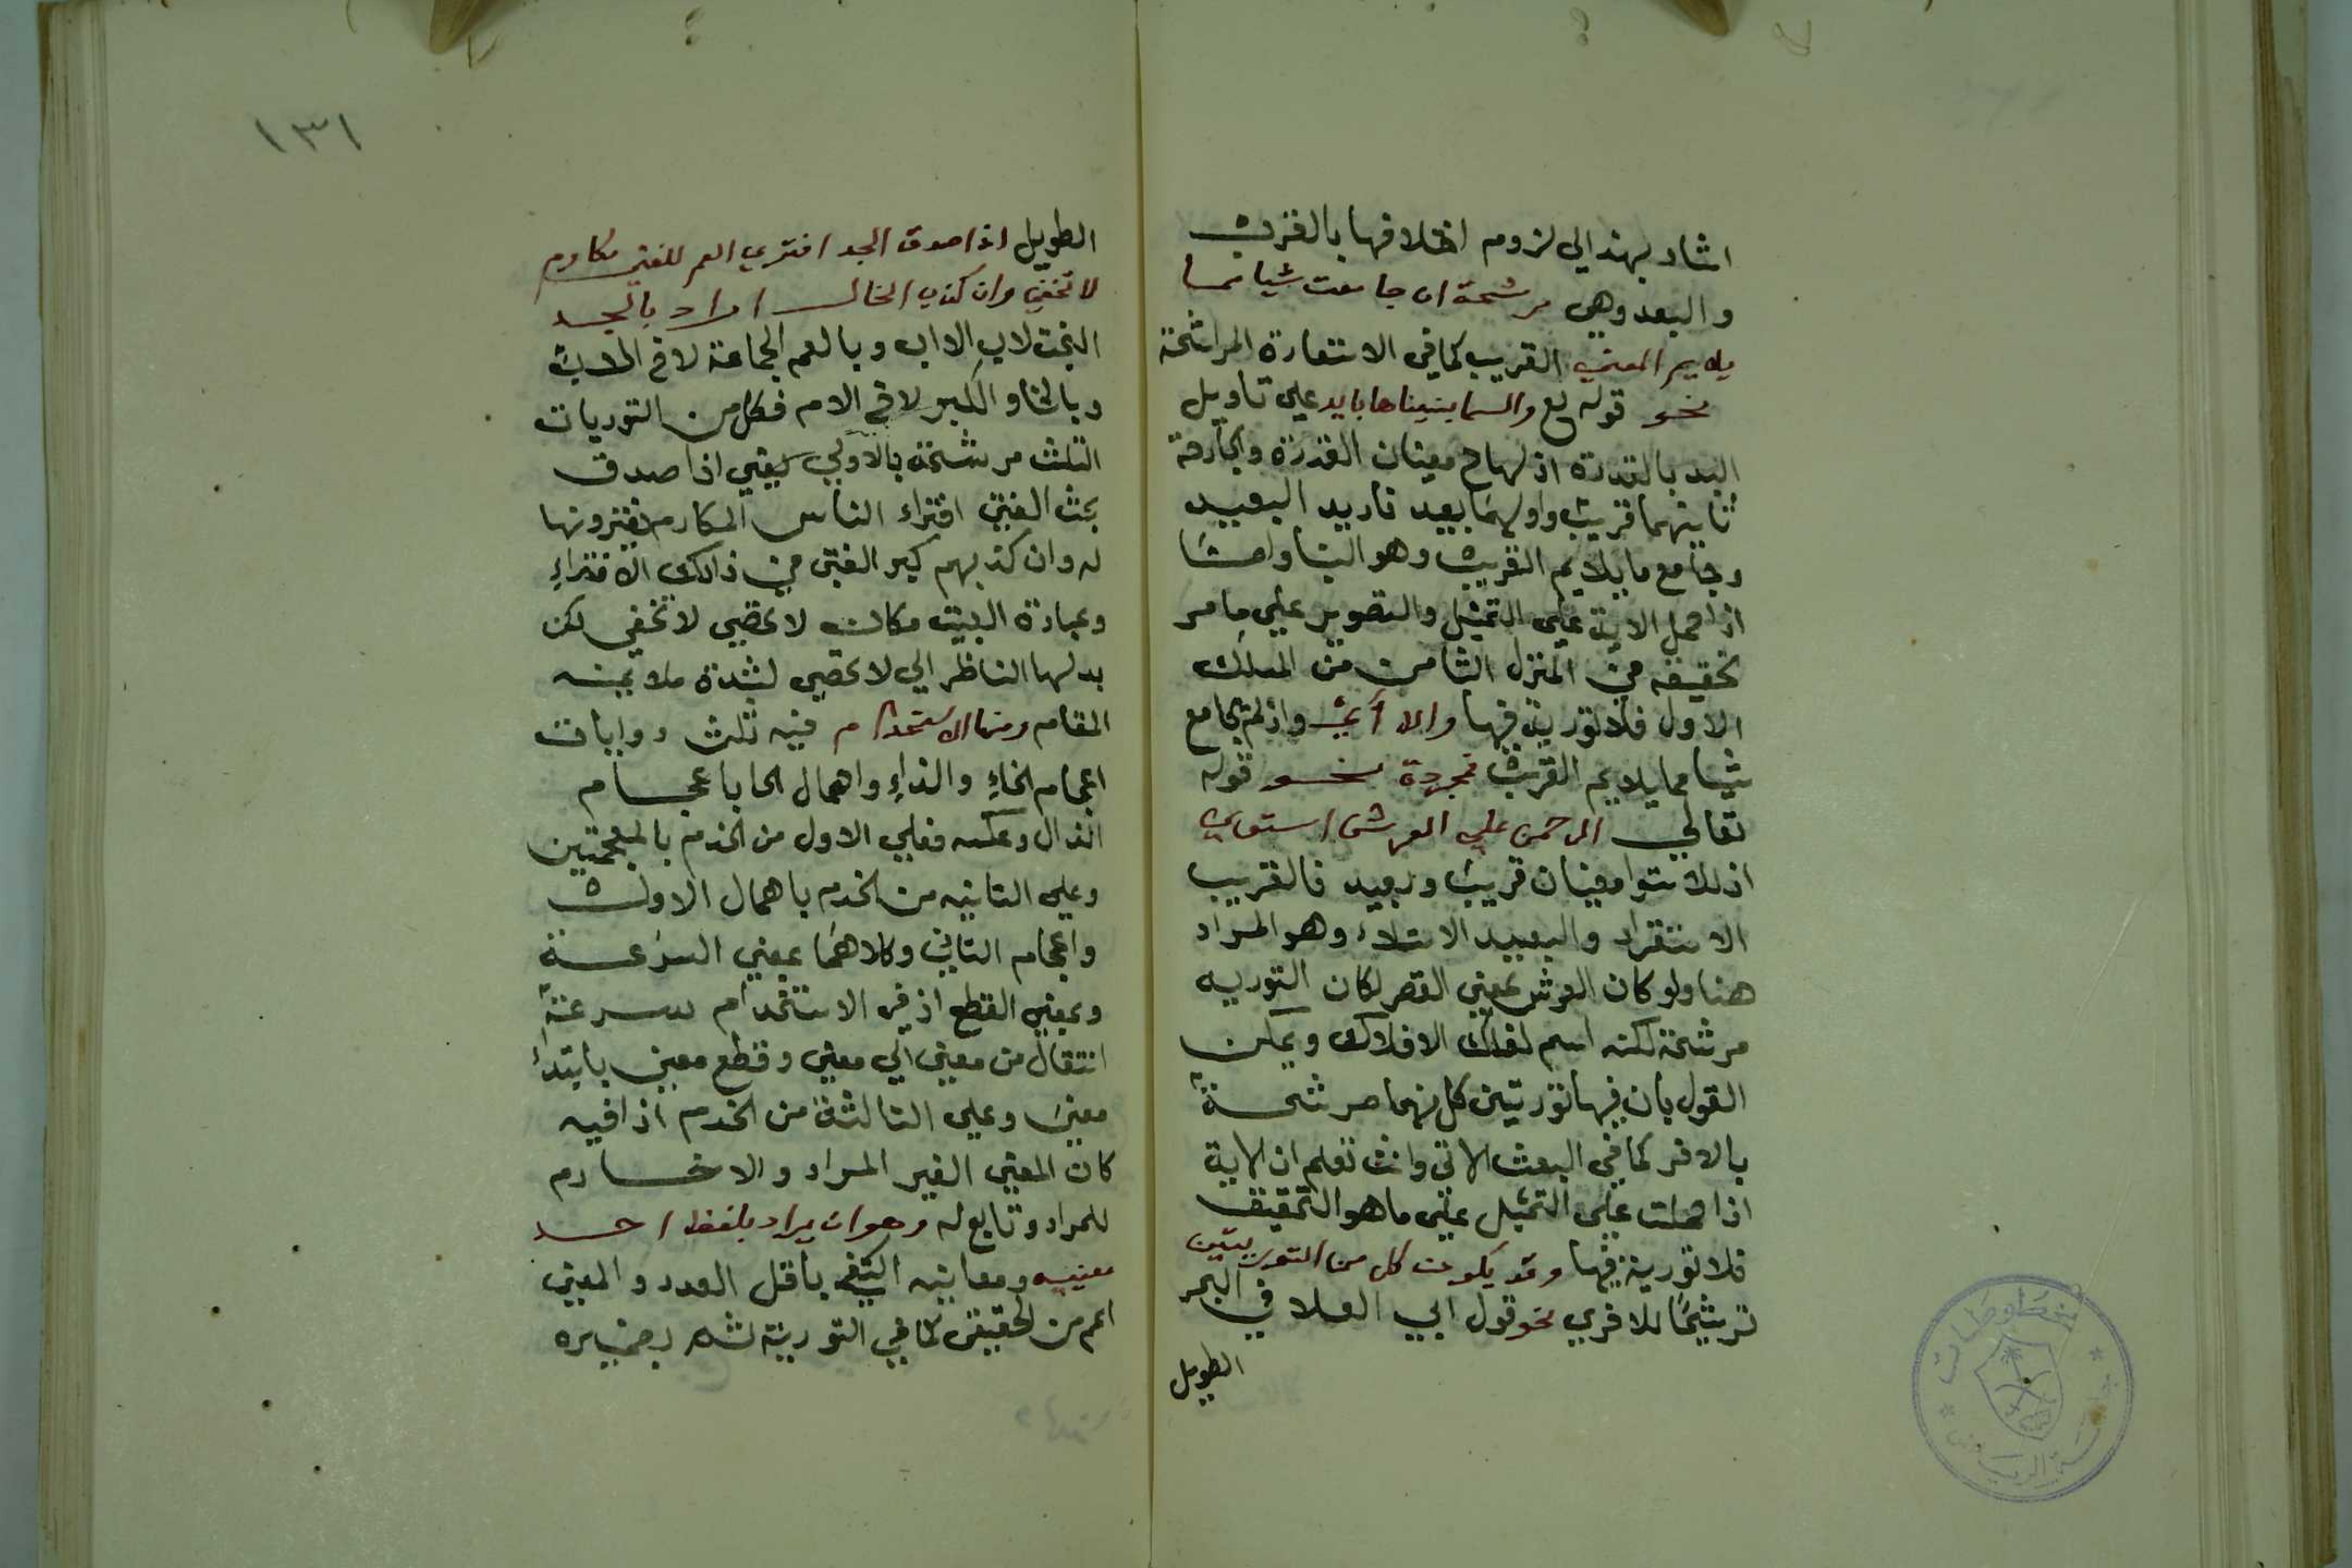 اشار بهذا الي لزوم اختلافها بالقرب
والبعد وهي مرشحة ان جامعت شيا مما
يلايم المعني القريب كما في الاستعارة المراشحة
نحو قوله تع والسما بنيناها بايد علي تاويل
اليد بالقدرة اذ لها ح معنيان القدرة والجارحة
ثانيهما قريب واولهما بعيد فاريد البعيد
وجامع ما يلايم القريب وهو البنا وامـا
اذا حمل الاية علي التمثيل والتصوير علي ما مر
تحقيقه في المنزل الثامن من المسلك
الاول فلا تورية فيها والا أي وان لم تجامع
شيا مما يلايم القريب فمجردة نحو قوله
تعالي الرحمن علي العرش استوي
اذ للاستوا معنيان قريب وبعيد فالقريب
الاستقرار والبعيد الاستيلاء وهو المراد
هنا ولو كان العرش بمعني القصر لكان التوريه
مرشحة لكنه اسم لفلك الافلاك ويمكن
القول بان فيها توريتين كل منهما مرشحة
بالاخر كما في البعث الاتي وانت تعلم ان الاية
اذا حملت علي التمثيل علي ما هو التحقيق
فلا تورية فيها وقد يكون كل من التوريتين
ترشيحًا للاخري نحو قول ابي العلا في البحر
الطويل
١٣١
الطويل اذا صدق الجد افتري العم للفتي مكارم
لا تخفي وان كذب الخال اراد بالجد
البخت لاب الاب وبالعم الجماعة لاخ الاب
وبالخال الكبر لاخ الام فكل من التوريات
الثلث مرشحة بالاولي يعني اذا صدق
بخت الفتي افتراء الناس المكارم يفترونها
له وان كذبهم كبر الفتي في ذلك الافتراءِ
وعبارة البيت مكان لا تحصي لا تخفي لكن
بدلها الناظر الي لا تحصي لشدة ملايمته
المقام ومنها الاستخدام فيه ثلث روايات
اعجام الخاءِ والذالِ واهمال الحا باعجام
الذال وعكسه فعلي الاول من الخذم بالمعجمتين
وعلي الثانيه من الحذم باهمال الاول
واعجام الثاني وكلاهما بمعني السرعة
وبمعني القطع اذ في الاستخدام سرعة
انتقال من معني الي معني وقطع معني بابتداء
معنيً وعلي الثالثة من الخدم اذا فيه
كان المعني الغير المراد والا خادم
للمراد وتابع له وهو ان يراد بلفظ احد
معنييه ومعانيه اكتفي باقل العدد والمعني
اعم من الحقيقي كما في التورية ثم بضميره
مخطوطات
جامعة الرياض